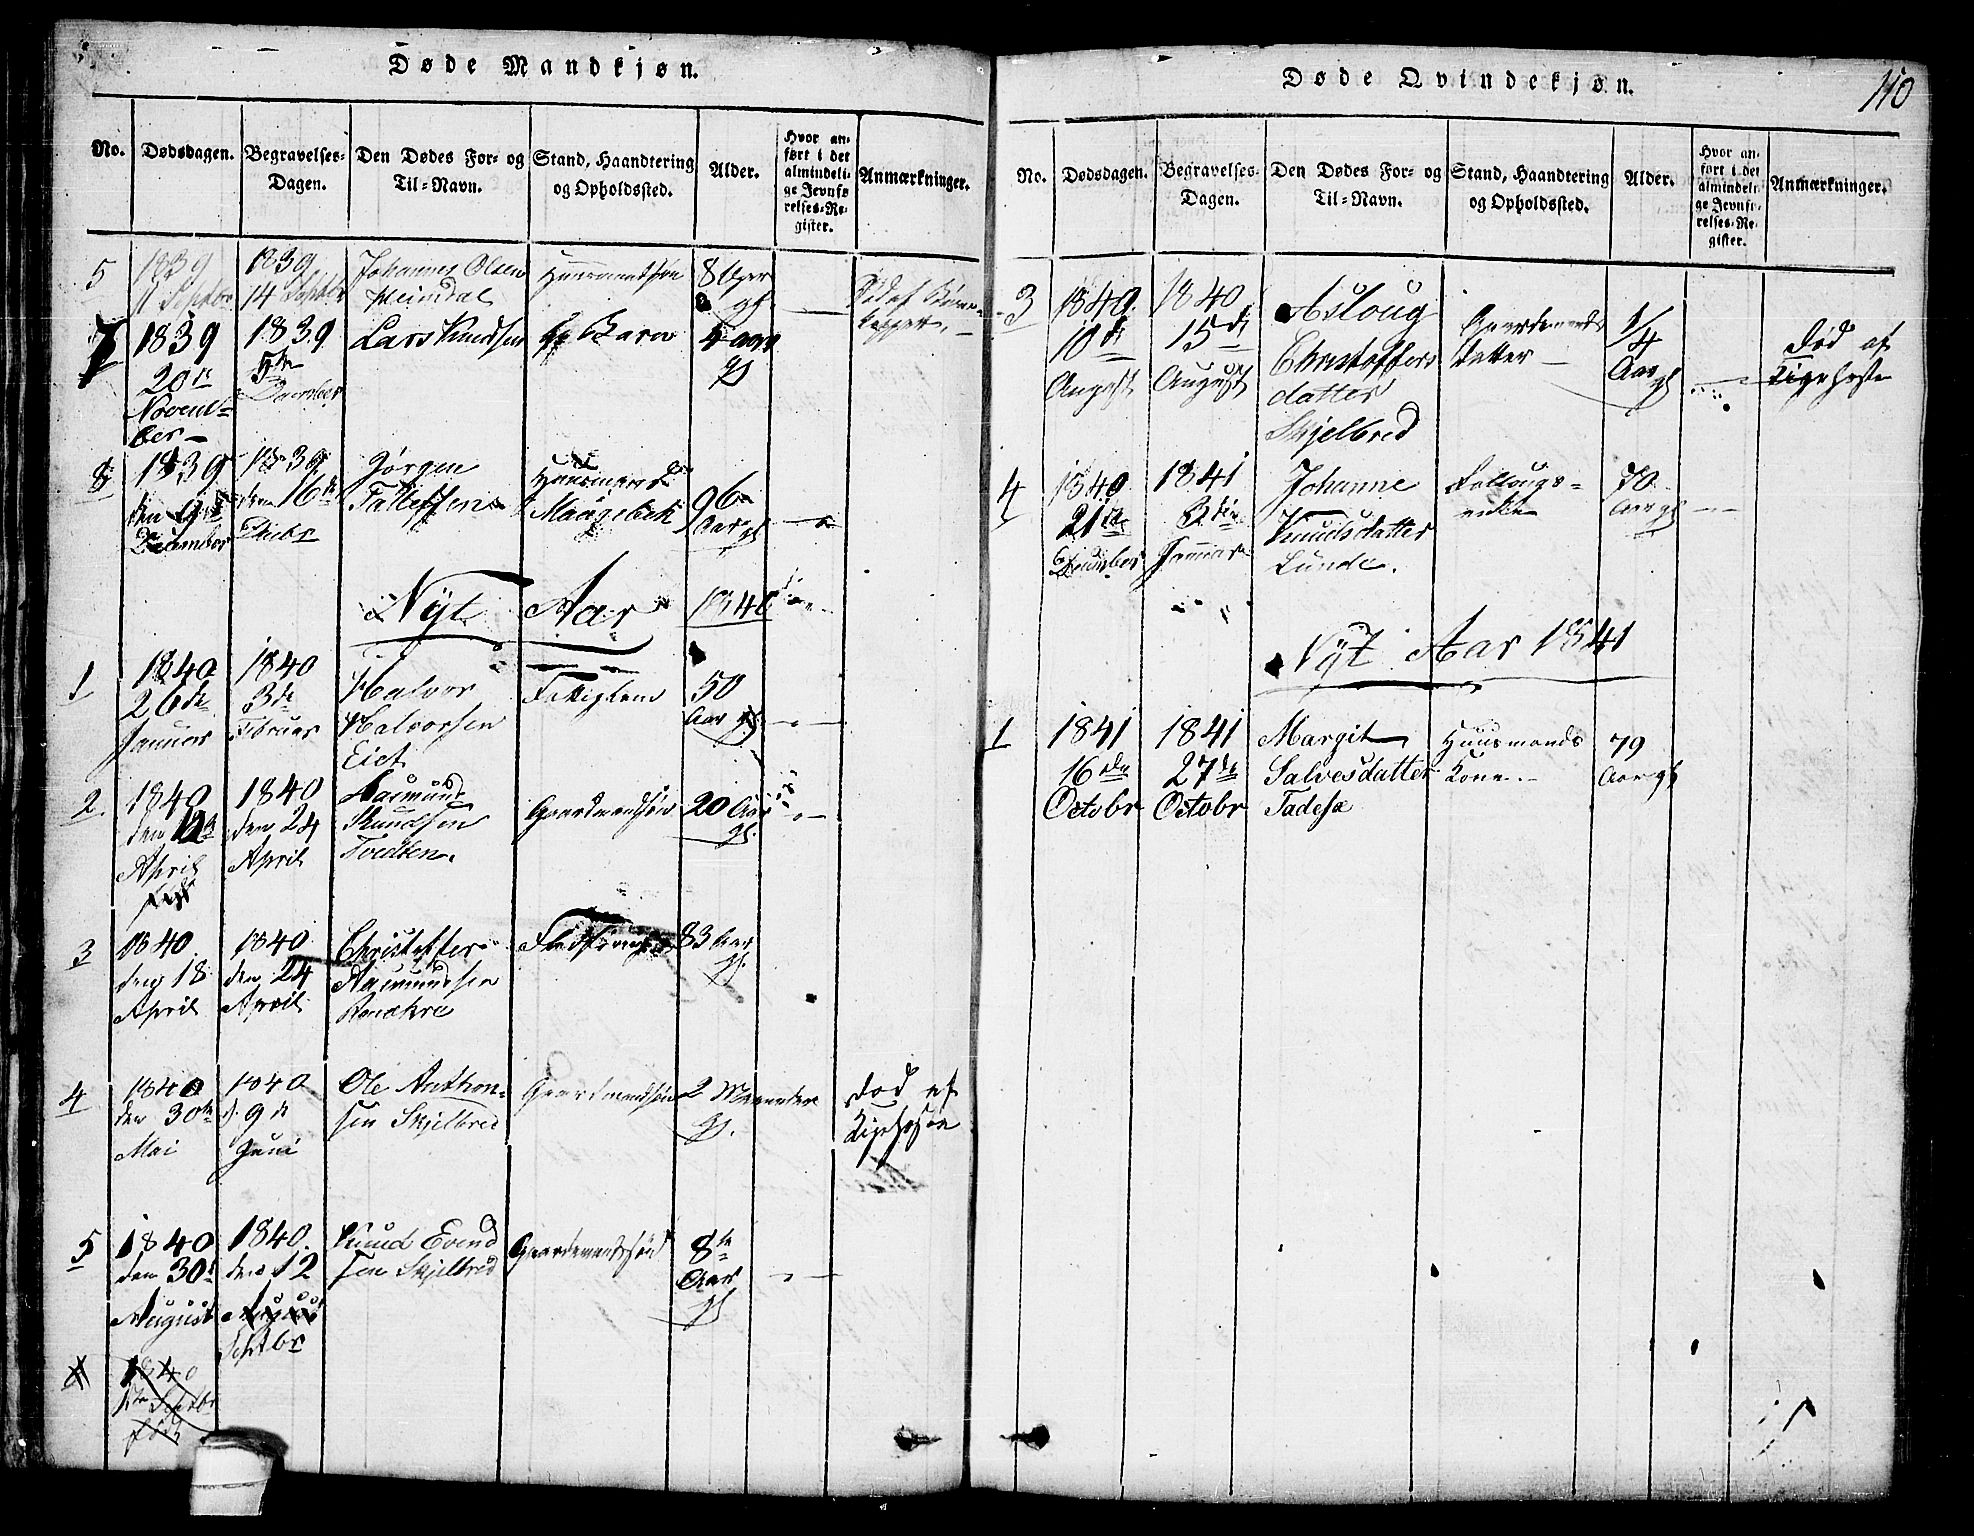 Døde Mandkjøn.
No.
Dødsdagen.
Begravelses-
Dagen.
Den Dødes For- og
Til-Navn.
Stand, Haandtering
og Opholdssted.
Alder.
Hvor an-
ført i det
almindeli-
ge Jevnfø-
relses-Re-
gister.
Anmærkninger.
5
1839
11 Septbr
1839
14 Septbr
Johannes Olsen
Heimdal
Huusmandssøn
8 Uger
gl
Død af Børne-
kopper.
7
1839
20de
Novem-
ber
1839
5te
December
Lars Knudsen
Barn
4 aar
gl
8
1839
den 9de
December
1839
den 16de
Decbr
Jørgen
Tallefsen
Huusmand
96
Aar gl
Nyt Aar 1840
1
1840
26de
Januar
1840
3de
Februar
Halvor
Halvorsen
Eiet
Fattiglem
50
Aar gl
2
1840
den
April
1840
den 24
April
Aasmund
Knudsen
Tvedten.
Gaardmandssøn
20 Aar
gl.
3
1840
den 18
April
1840
den 24
April
Christoffer
Aasmundsen
83 Aar
gl.
4
1840
den 30te
Mai
1840
d. 9de
Juni
Ole Anthon-
sen Skjelbred
Gaardmandssøn
2 Maaneder
gl.
Død af
Kighoste
5
1840
den 30te
August
1840
den 12
August
Septbr
Knud Evend
sen Skjelbred
Gaardmandssøn
8te
Aar
gl
1840
Septbr
født
Døde Qvindekjøn.
110
No.
Dødsdagen.
Begravelses-
Dagen.
Den Dødes For- og
Til-Navn.
Stand, Haandtering
og Opholdssted.
Alder.
Hvor an-
ført i det
almindeli-
ge Jevnfø-
relses-Re-
gister.
Anmærkninger.
3
1840
10de
August
1840
15de
August
Asloug
Christoffers
datter
Skjelbred
Gaardmands
datter
1/4
Aar gl
Død af
Kighoste
4
1840
21de
December
1841
3die
Januar
Johanne
Knudsdatter
Lunde.
70
Aar gl
Nyt Aar 1841
1
1841
16de
Octobr
1841
27de
Octobr
Margit
Salvesdatter
Tadesæ
Huusmands
Kone
79
Aar gl